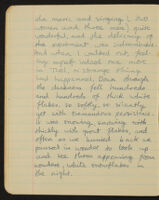 the music and singing) two
women and three men) quite
wonderful, and the delivery of
the movement was determined
and when I walked out, feel-
ing myself indeed once more
in Tibet, a strange thing
had happened. Down through
the darkness fell hundreds
and hundreds of thick white
flakes, so softly, so silently
yet with tremendous persistence.
It was snowing, snowing with
thickly with great flakes, and
often as we hurried back we
paused in wonder to look up
and see them appearing from
nowhere, white snowflakes in
the night.